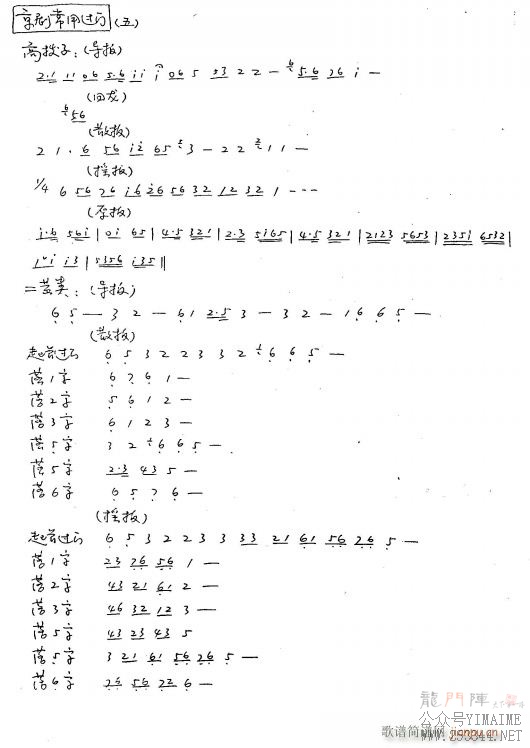 京剧常用过门(五)
高拨子：(导板)
2·1 11 06 5·6 i i i 06 5 53 2 2 — 5·6 76 i —
(回龙)
56
(散板)
2 1 · 6 56 i2 65 3 — 2 2 1 1 —
(摇板)
1/4 6 56 26 i6 26 56 32 12 32 1 ---
(原板)
i·6 56i | 0i 65 | 4·5 321 | 2·3 5i65 | 4·5 321 | 2123 5653 | 235i 6532 |
i3 | 5356 i35 ‖
二黄类：(导板)
6 5 — 3 2 — 61 2·5 3 — 3 2 — 1 6 6 5 —
(散板)
起首过门 6 5 3 2 2 3 3 2 6 6 5 —
落1字 6 7 6 1 —
落2字 5 6 1 2 —
落3字 6 1 2 3 —
落5字 3 2 6 6 5 —
落5字 2·3 43 5 —
落6字 6 5 7 6 —
(摇板)
起首过门 6 5 3 2 2 3 3 33 21 61 56 76 5 —
落1字 23 76 56 1 —
落2字 43 21 61 2 —
落3字 46 32 12 3 —
落5字 43 23 43 5
落5字 3 21 61 56 76 5 —
落6字 76 56 72 6 —
龍門陣
公众号YIMAIME
歌谱简谱网